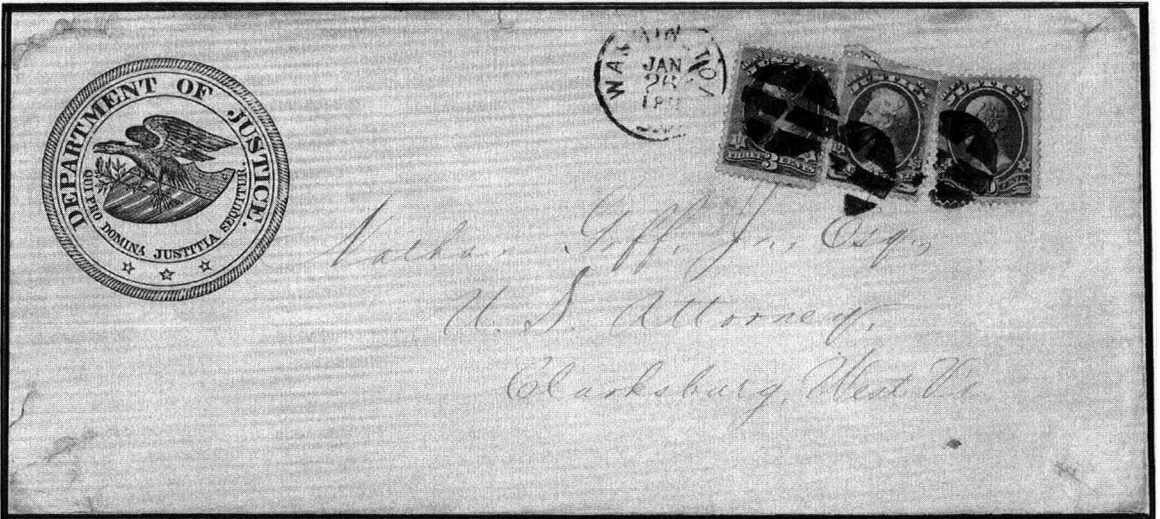 DEPARTMENT OF JUSTICE.
QUI PRO DOMINA JUSTITIA SEQUITUR.
WASHINGTON
JAN
THREE 3 CENTS
Nathan Goff. Jr., Esq.,
U. S. Attorney,
Clarksburg, West Va.